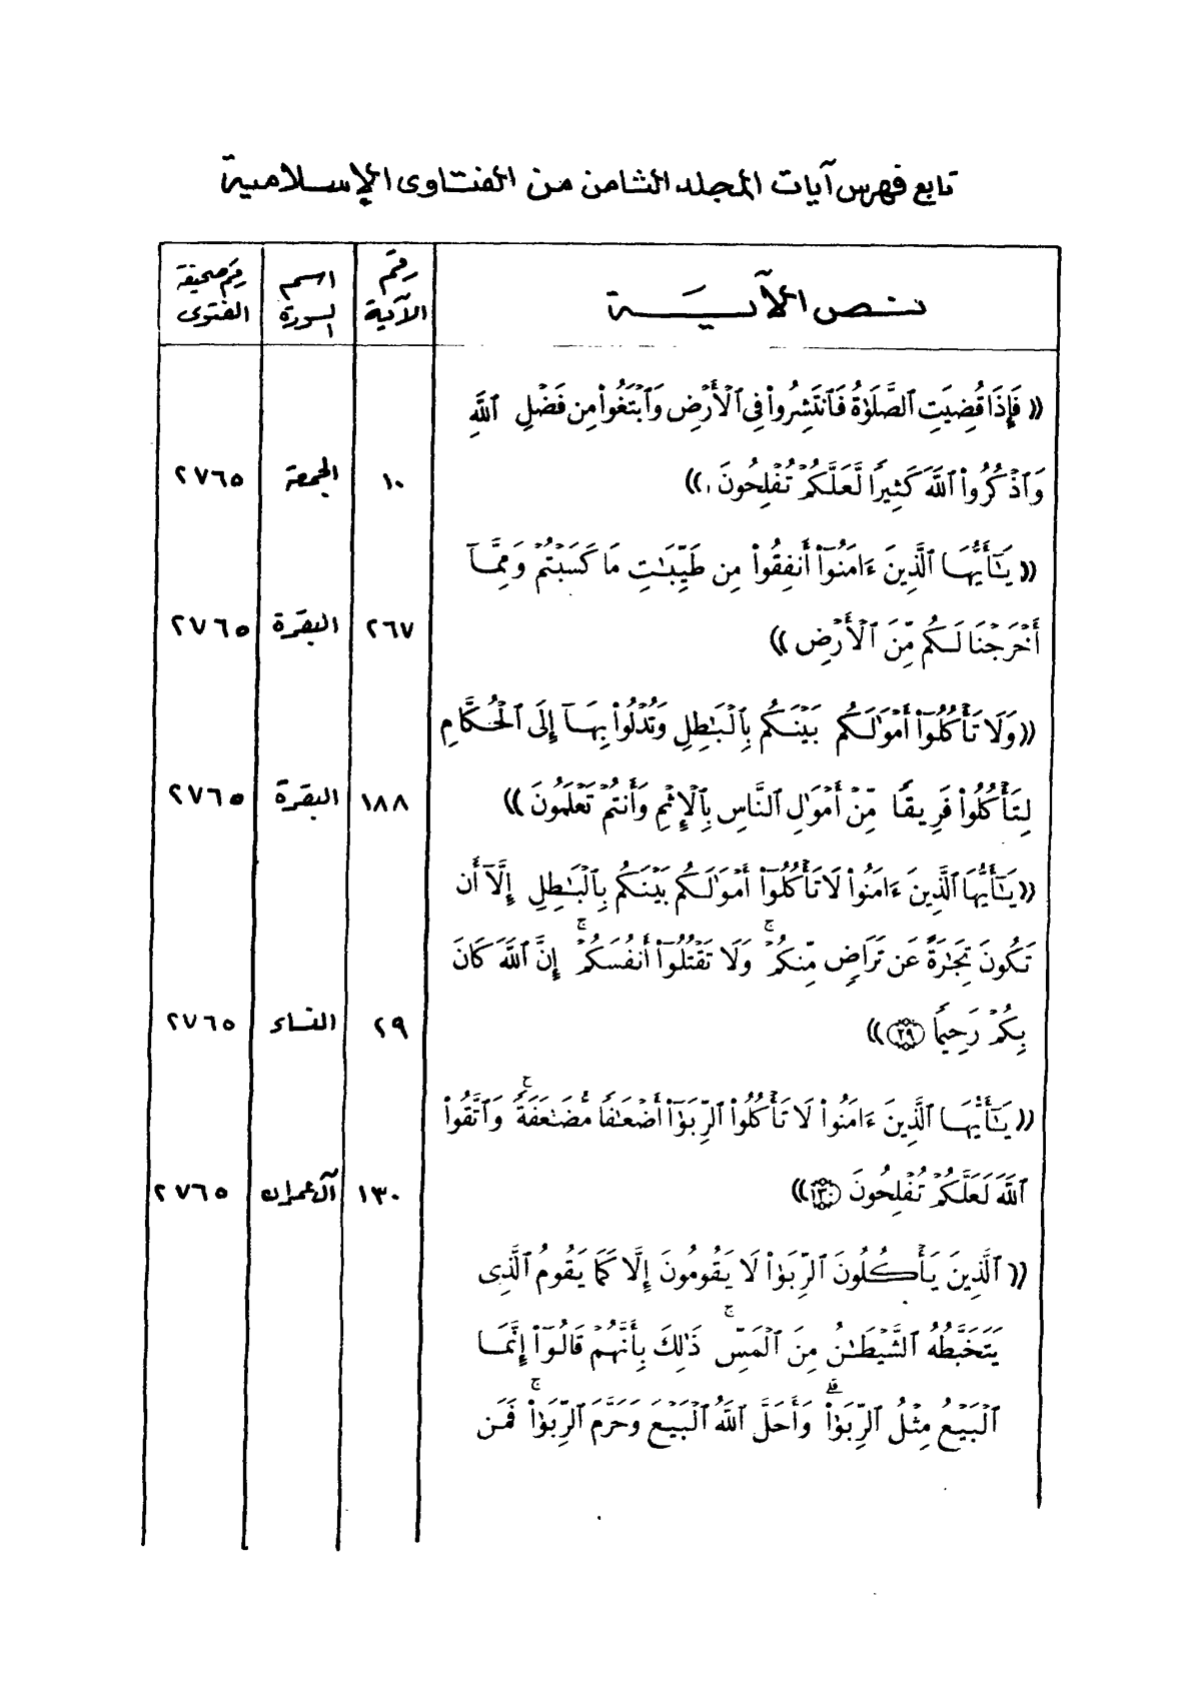 تابع فهرس آيات المجلد الثامن من الفتاوى الإسلامية
نص الآية
رقم الآية
اسم السورة
رقم صحيفة الفتوى
(( فَإِذَا قُضِيَتِ ٱلصَّلَوٰةُ فَٱنتَشِرُوا۟ فِى ٱلْأَرْضِ وَٱبْتَغُوا۟ مِن فَضْلِ ٱللَّهِ
وَٱذْكُرُوا۟ ٱللَّهَ كَثِيرًا لَّعَلَّكُمْ تُفْلِحُونَ )) ١٠ الجمعة ٢٧٦٥
(( يَـٰٓأَيُّهَا ٱلَّذِينَ ءَامَنُوٓا۟ أَنفِقُوا۟ مِن طَيِّبَـٰتِ مَا كَسَبْتُمْ وَمِمَّآ
أَخْرَجْنَا لَكُم مِّنَ ٱلْأَرْضِ )) ٢٦٧ البقرة ٢٧٦٥
(( وَلَا تَأْكُلُوٓا۟ أَمْوَٰلَكُم بَيْنَكُم بِٱلْبَـٰطِلِ وَتُدْلُوا۟ بِهَآ إِلَى ٱلْحُكَّامِ
لِتَأْكُلُوا۟ فَرِيقًا مِّنْ أَمْوَٰلِ ٱلنَّاسِ بِٱلْإِثْمِ وَأَنتُمْ تَعْلَمُونَ )) ١٨٨ البقرة ٢٧٦٥
(( يَـٰٓأَيُّهَا ٱلَّذِينَ ءَامَنُوا۟ لَا تَأْكُلُوٓا۟ أَمْوَٰلَكُم بَيْنَكُم بِٱلْبَـٰطِلِ إِلَّآ أَن
تَكُونَ تِجَـٰرَةً عَن تَرَاضٍ مِّنكُمْ ۚ وَلَا تَقْتُلُوٓا۟ أَنفُسَكُمْ ۚ إِنَّ ٱللَّهَ كَانَ
بِكُمْ رَحِيمًا ٢٩ )) ٢٩ النساء ٢٧٦٥
(( يَـٰٓأَيُّهَا ٱلَّذِينَ ءَامَنُوا۟ لَا تَأْكُلُوا۟ ٱلرِّبَوٰٓا۟ أَضْعَـٰفًا مُّضَـٰعَفَةً ۖ وَٱتَّقُوا۟
ٱللَّهَ لَعَلَّكُمْ تُفْلِحُونَ ١٣٠ )) ١٣٠ آل عمران ٢٧٦٥
(( ٱلَّذِينَ يَأْكُلُونَ ٱلرِّبَوٰا۟ لَا يَقُومُونَ إِلَّا كَمَا يَقُومُ ٱلَّذِى
يَتَخَبَّطُهُ ٱلشَّيْطَـٰنُ مِنَ ٱلْمَسِّ ۚ ذَٰلِكَ بِأَنَّهُمْ قَالُوٓا۟ إِنَّمَا
ٱلْبَيْعُ مِثْلُ ٱلرِّبَوٰا۟ ۗ وَأَحَلَّ ٱللَّهُ ٱلْبَيْعَ وَحَرَّمَ ٱلرِّبَوٰا۟ ۚ فَمَن